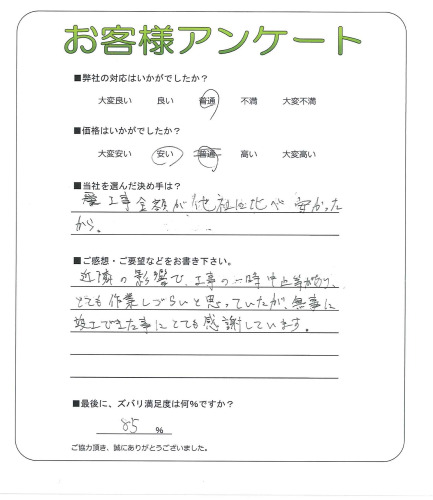 お客様アンケート
■弊社の対応はいかがでしたか?
大変良い 良い 普通 不満 大変不満
■価格はいかがでしたか?
大変安い 安い 普通 高い 大変高い
■当社を選んだ決め手は?
工事金額が他社に比べ安かった
から。
■ご感想・ご要望などをお書き下さい。
近隣の影響で、工事の一時中止等があり、
とても作業しづらいと思っていたが、無事に
竣工できた事にとても感謝しています。
■最後に、ズバリ満足度は何%ですか?
85 %
ご協力頂き、誠にありがとうございました。